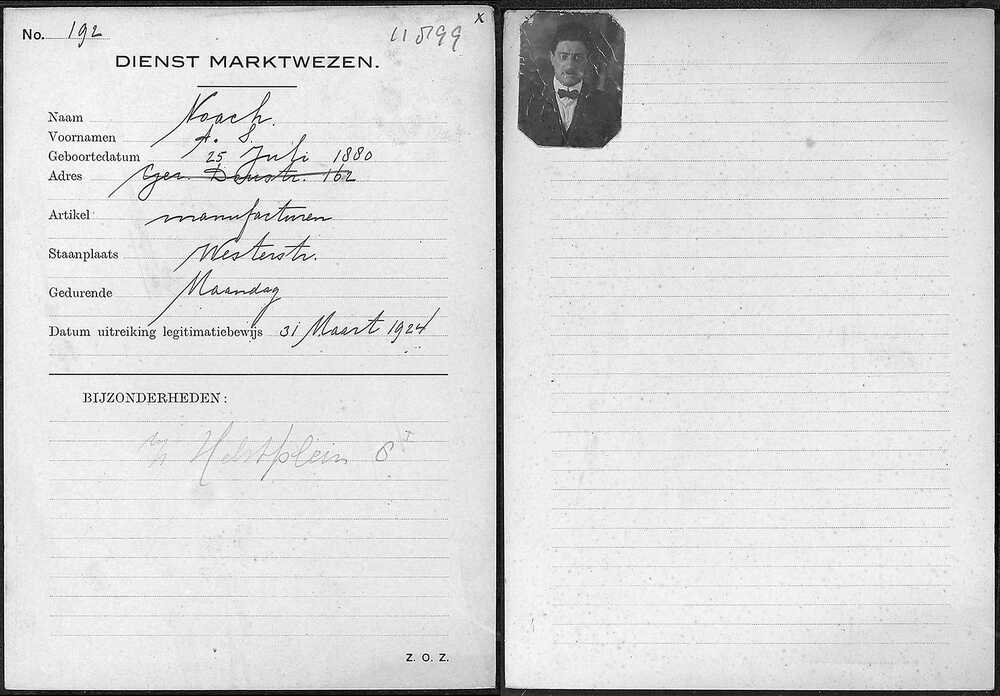 No. 192
11599
x
DIENST MARKTWEZEN.
Naam Noach.
Voornamen A. S.
Geboortedatum 25 Juli 1880
Adres Ger. Doustr. 162
Artikel manufacturen
Staanplaats Westerstr.
Gedurende Maandag
Datum uitreiking legitimatiebewijs 31 Maart 1924
BIJZONDERHEDEN:
Helstplein
Z. O. Z.